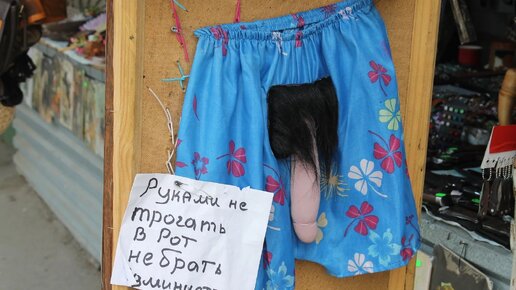 Руками не
трогать
в рот
не брать